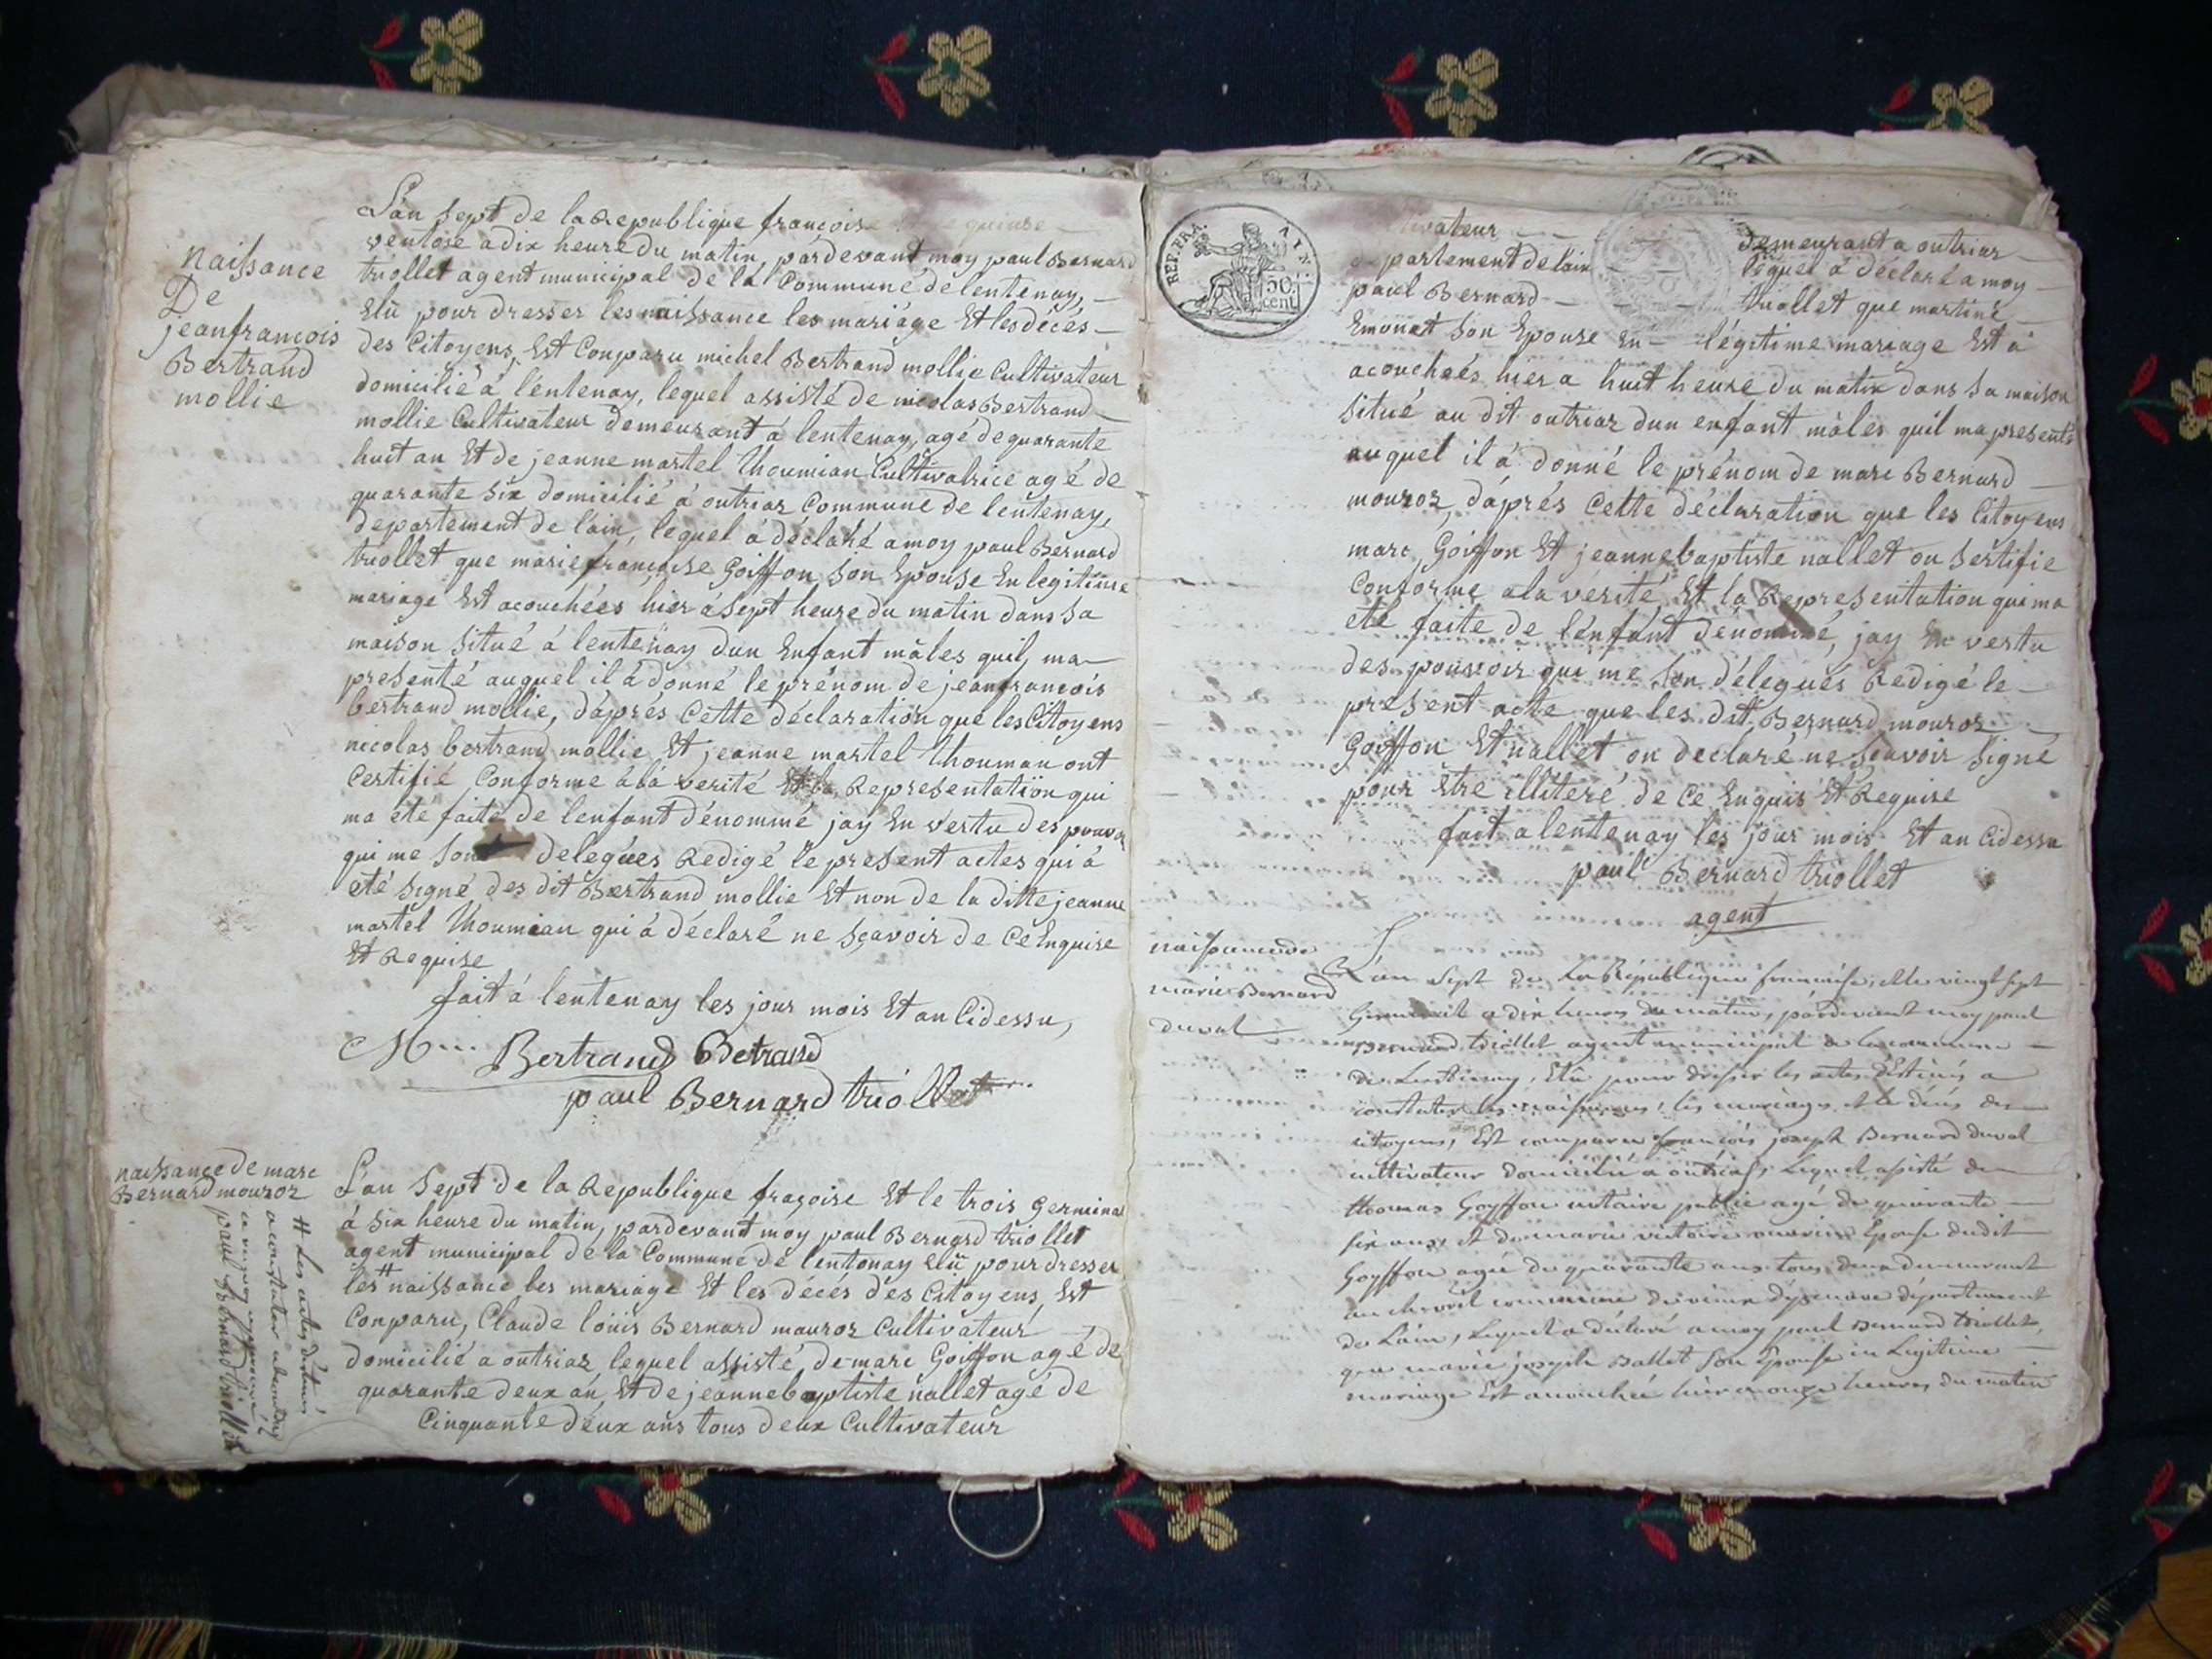 naissance
De
jeanfrancois
Bertrand
mollie
L'an sept de la Republique françoise quinse
ventose a dix heure du matin, pardevant moy paul Bernard
triollet agent municipal de la Commune de lentenay,
Elû pour dresser les naissance les mariage Et les décés
des Citoyens, Est Conparu michel Bertrand mollie Cultivateur
domicilié à lentenay, lequel assisté de nicolas Bertrand
mollie Cultivateur demeurant á lentenay, agé de quarante
huit an Et de jeanne martel thoumian Cultivatrice agé de
quarante six domicilié á outriaz Commune de lentenay,
departement de lain, lequel á déclaré a moy paul Bernard
triollet que marie françoise Goiffon son Epouse En legitime
mariage Est acouchées hier á sept heure du matin dans sa
maison situé á lentenay dun Enfant mâles quil, ma
presenté auquel il á donné le prénom de jeanfrancois
bertrand mollie, dáprés Cette déclaration que les Citoyens
nicolas bertrand mollie Et jeanne martel thoumian ont
Certifié Conforme á la verité Et la Representation qui
ma été faite de lenfant dénommé jay En vertu des pouvoi
qui me son deleguées Redigé le present actes qui á
eté signé des dit Bertrand mollie Et non de la ditte jeanne
martel thoumian qui á déclaré ne sçavoir de Ce Enquise
Et Requise
fait á lentenay les jour mois Et an Cidessu,
Bertrand Betrand
paul Bernard triollet
naissance de marc
Bernard mouroz
# Les actes détinés
a constater
paul Bernard triollet
L'an sept de la Republique fraçoise Et le trois germinal
á six heure du matin, pardevant moy paul Bernard triollet
agent municipal de la Commune de lentenay Elû pour dresser
les # naissance les mariage Et les décés des Citoyens, Est
Conparu, Claude loüis Bernard mouroz Cultivateur
domicilié a outriaz lequel assisté, de marc Goiffon agé de
quarante deux an, Et de jeannebaptiste nallet agé de
Cinquante deux ans tous deux Cultivateur
REP. FRA. AIN
50 cent
tivateur demeurant a outriaz
departement de lain lequel á déclaré a moy
paul Bernard triollet que martine
Emonet son Epouse En légitime mariage Est á
acouchées hier a huit heure du matin dans sa maison
situé au dit outriaz dun enfant mâles quil ma presenté
auquel il á donné le prénom de marc Bernard
mouroz, dáprés Cette déclaration que les Citoyens
marc Goiffon Et jeannebaptiste nallet on sertifie
Conforme a la vérité Et la Representation qui ma
été faite de lénfant dénommé, jay En vertu
des pouvoir qui me son délegués Redigé le
present acte que les dit Bernard mouroz
Goiffon Et nallet on declaré ne sçavoir signé
pour Être illiteré de Ce Enquis Et Requise
fait a lentenay les jour mois Et an Cidessu
paul Bernard triollet
agent
naissance de
marie Bernard
duval
L'an sept de La République françoise, et le vingt sept
Germinal a dix heures du matin, pardevant moy paul
Bernard triollet agent municipal de la commune
de Lentenay, Elû pour dresser les actes déstinés a
constater les naissances, les mariages et le décés des
citoyens, Est comparu françois joseph Bernard duval
cultivateur domicilié a outriaz, Lequel assisté de
thomas Goyffon notaire public agé de quarante
six ans, et de marie victoire Epouse dudit
Goyffon agée de quarante ans tous deux demeurant
au commune département
de Lain, Lequel a déclaré a moy paul Bernard triollet,
que marie joseph Ballet son Epouse en Légitime
mariage Est accouchée hier a onze heures du matin